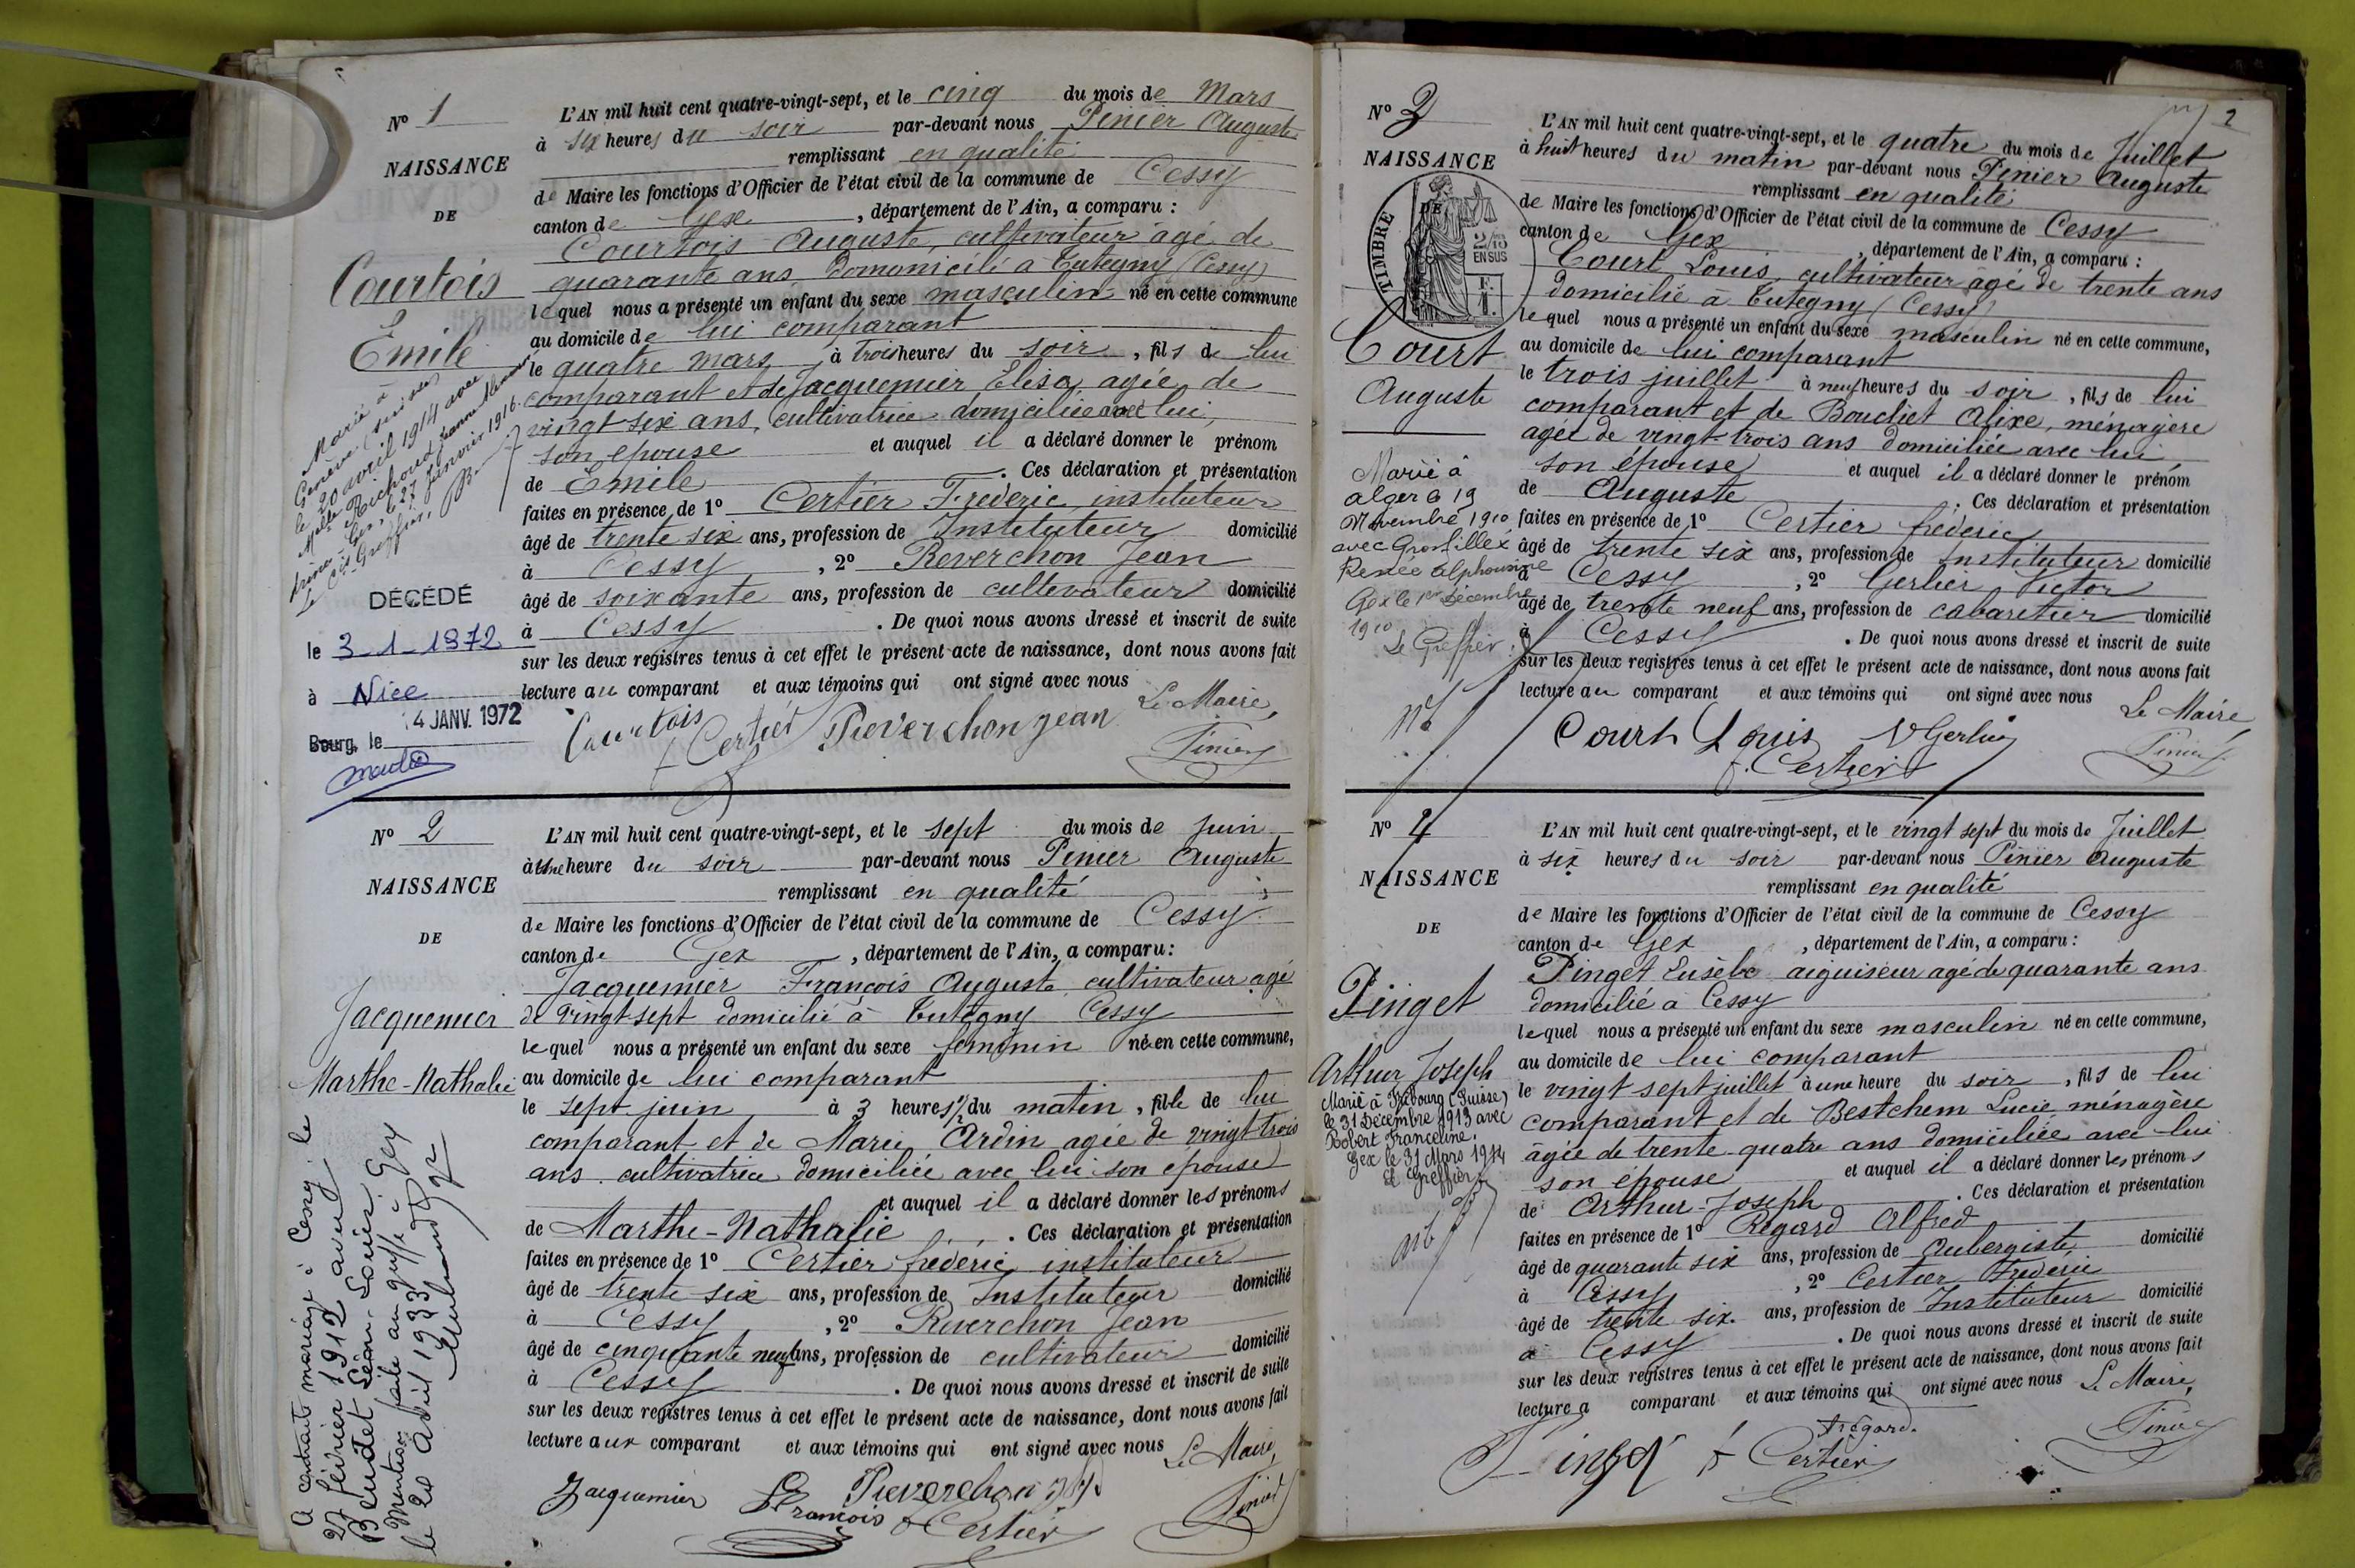 Nº 1
NAISSANCE
DE
Courtois
Emile
Marié à
Genève (Suisse)
le 20 avril 1914 avec
Melle Richoud Jeanne
Gex, le 27 Janvier 1916.
Le Cis Greffier,
DÉCÉDÉ
le 3-1-1972
à Nice
Bourg, le 14 JANV. 1972
L'AN mil huit cent quatre-vingt-sept, et le cinq du mois de Mars
à six heures du soir par-devant nous Pinier Auguste
remplissant en qualité
de Maire les fonctions d'Officier de l'état civil de la commune de Cessy
canton de Gex, département de l'Ain, a comparu :
Courtois Auguste, cultivateur agé de
quarante ans, domonicilié à Tutegny (Cessy)
lequel nous a présenté un enfant du sexe masculin né en cette commune
au domicile de lui comparant
le quatre mars à trois heures du soir, fils de lui
comparant et de Jacquemier Elisa, agée de
vingt-six ans, cultivatrice domiciliée avec lui,
son epouse et auquel il a déclaré donner le prénom
de Emile. Ces déclaration et présentation
faites en présence de 1º Certier Frederic, instituteur
âgé de trente six ans, profession de Instituteur domicilié
à Cessy, 2º Reverchon Jean
âgé de soixante ans, profession de cultivateur domicilié
à Cessy. De quoi nous avons dressé et inscrit de suite
sur les deux registres tenus à cet effet le présent acte de naissance, dont nous avons fait
lecture au comparant et aux témoins qui ont signé avec nous Le Maire,
Courtois Certier Reverchon jean Pinier
Nº 2
NAISSANCE
DE
Jacquemier
Marthe-Nathalie
A contracté mariage à Cessy le
27 février 1912 avec
Beudet Léon-Louis
Mention faite au greffe à Gex
le 20 Avril 1933
L'AN mil huit cent quatre-vingt-sept, et le sept du mois de juin
à une heure du soir par-devant nous Pinier Auguste
remplissant en qualité
de Maire les fonctions d'Officier de l'état civil de la commune de Cessy
canton de Gex, département de l'Ain, a comparu :
Jacquemier François Auguste cultivateur agé
de vingt-sept domicilié à Tutegny Cessy
lequel nous a présenté un enfant du sexe feminin né en cette commune,
au domicile de lui comparant
le sept juin à 3 heures 1/2 du matin, fille de lui
comparant et de Marie Ardin agée de vingt-trois
ans cultivatrice domiciliée avec lui son epouse
et auquel il a déclaré donner les prénoms
de Marthe-Nathalie. Ces déclaration et présentation
faites en présence de 1º Certier frederic instituteur
âgé de trente six ans, profession de Instituteur domicilié
à Cessy, 2º Reverchon Jean
âgé de cinquante neuf ans, profession de cultivateur domicilié
à Cessy. De quoi nous avons dressé et inscrit de suite
sur les deux registres tenus à cet effet le présent acte de naissance, dont nous avons fait
lecture aux comparant et aux témoins qui ont signé avec nous Le Maire,
Jacquemier François Reverchon Certier Pinier
2
Nº 3
NAISSANCE
DE
TIMBRE
2/10
EN SUS
Court
Auguste
Marié à
alger le 19
Novembre 1910
avec Grosfillex
Renée alphonsine
Gex le 1er Décembre
1910
Le Greffier
L'AN mil huit cent quatre-vingt-sept, et le quatre du mois de Juillet
à huit heures du matin par-devant nous Pinier Auguste
remplissant en qualité
de Maire les fonctions d'Officier de l'état civil de la commune de Cessy
canton de Gex, département de l'Ain, a comparu :
Court Louis, cultivateur agé de trente ans
domicilié à Tutegny (Cessy)
lequel nous a présenté un enfant du sexe masculin né en cette commune,
au domicile de lui comparant
le trois juillet à neuf heures du soir, fils de lui
comparant et de Bouchet Alixe, ménagère
agée de vingt-trois ans domiciliée avec lui
son épouse et auquel il a déclaré donner le prénom
de Auguste. Ces déclaration et présentation
faites en présence de 1º Certier frederic
âgé de trente six ans, profession de Instituteur domicilié
à Cessy, 2º Gerlier Victor
âgé de trente neuf ans, profession de cabaretier domicilié
à Cessy. De quoi nous avons dressé et inscrit de suite
sur les deux registres tenus à cet effet le présent acte de naissance, dont nous avons fait
lecture au comparant et aux témoins qui ont signé avec nous Le Maire,
Court Louis V Gerlier
F. Certier Pinier
Nº 4
NAISSANCE
DE
Pinget
Arthur Joseph
Marié à Fribourg (Suisse)
le 31 Décembre 1913 avec
Robert Franceline.
Gex le 31 Mars 1914
Le Greffier
L'AN mil huit cent quatre-vingt-sept, et le vingt sept du mois de Juillet
à six heures du soir par-devant nous Pinier Auguste
remplissant en qualité
de Maire les fonctions d'Officier de l'état civil de la commune de Cessy
canton de Gex, département de l'Ain, a comparu :
Pinget Eusèbe aiguiseur agé de quarante ans
domicilié à Cessy
lequel nous a présenté un enfant du sexe masculin né en cette commune,
au domicile de lui comparant
le vingt sept juillet à une heure du soir, fils de lui
comparant et de Bestchem Lucie ménagère
âgée de trente-quatre ans domiciliée avec lui
son épouse et auquel il a déclaré donner les prénoms
de Arthur-Joseph. Ces déclaration et présentation
faites en présence de 1º Régard Alfred
âgé de quarante six ans, profession de Aubergiste domicilié
à Cessy, 2º Certier Frederic
âgé de trente six ans, profession de Instituteur domicilié
à Cessy. De quoi nous avons dressé et inscrit de suite
sur les deux registres tenus à cet effet le présent acte de naissance, dont nous avons fait
lecture a comparant et aux témoins qui ont signé avec nous Le Maire,
Pinget Régard. Certier Pinier